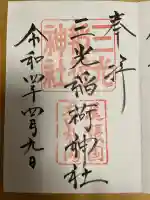 奉拝
三光稲荷神社
令和四年四月九日
三光
稲荷
神社